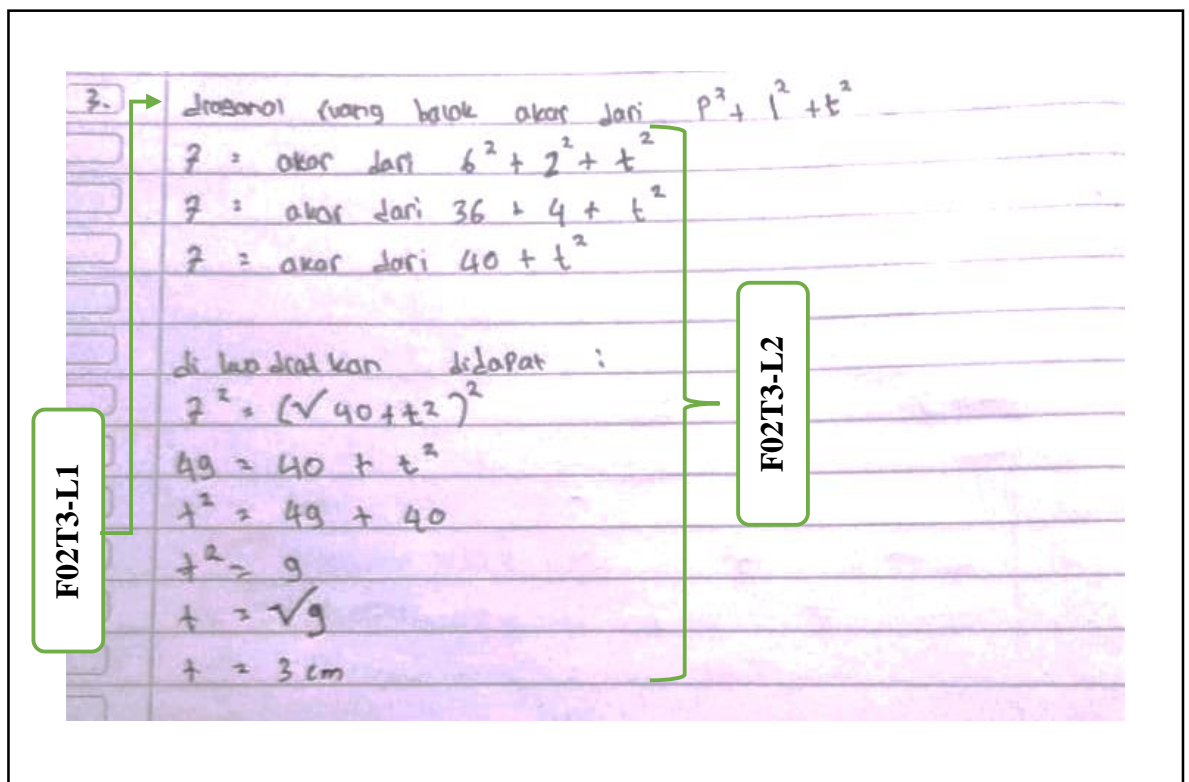 3. diagonal ruang balok akar dari p² + l² + t²
7 = akar dari 6² + 2² + t²
7 = akar dari 36 + 4 + t²
7 = akar dari 40 + t²
di kuadratkan didapat :
7² = (√40+t²)²
49 = 40 + t²
t² = 49 + 40
t² = 9
t = √9
t = 3 cm
F02T3-L1
F02T3-L2